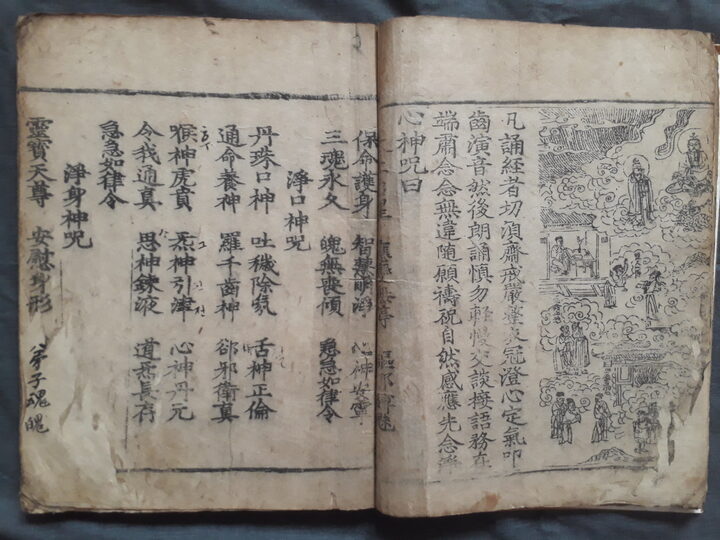 凡誦經者切湏齋戒嚴整衣冠澄心定氣叩
齒演音然後朗誦慎勿輕慢交談接語務在
端肅念念無違隨願禱祝自然感應先念淨
心神咒曰
保命護身 智慧明淨 心神安寧
三魂永久 魄無喪傾 急急如律令
淨口神咒
丹珠口神 吐穢除氛 舌神正倫
通命養神 羅千齒神 郤邪衛真
喉神虎賁 炁神引津 心神丹元
令我通真 思神鍊液 道炁長存
急急如律令
淨身神咒
靈寶天尊 安慰身形 弟子魂魄